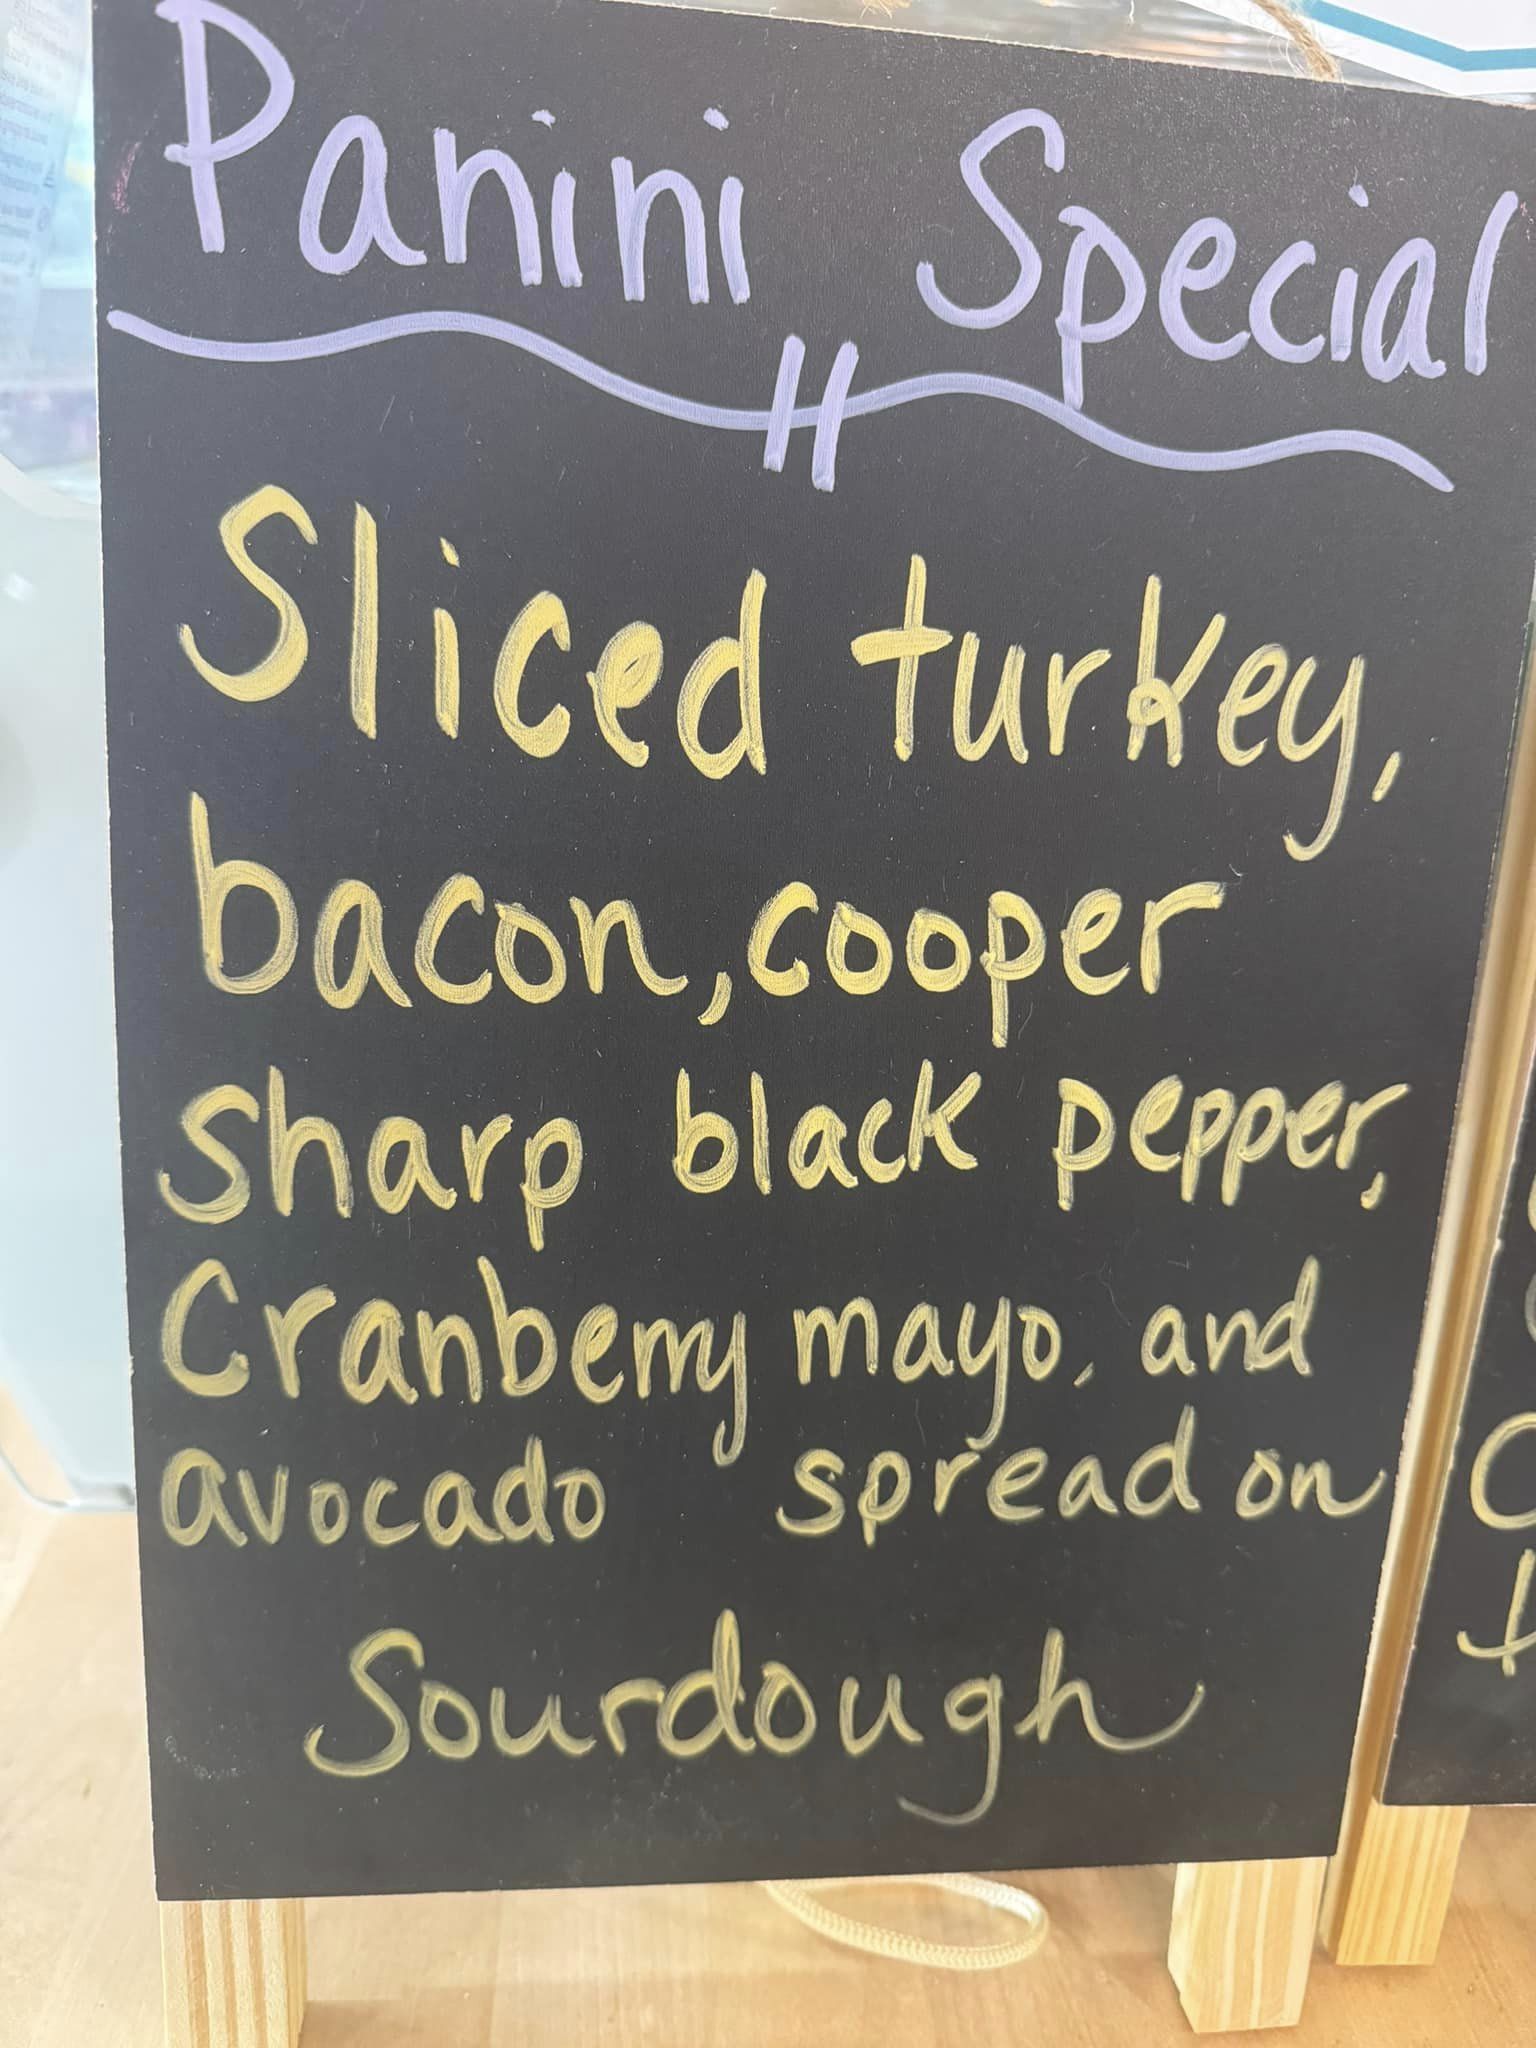 Panini Special
Sliced turkey,
bacon, cooper
sharp black pepper,
Cranberry mayo, and
avocado spread on
Sourdough